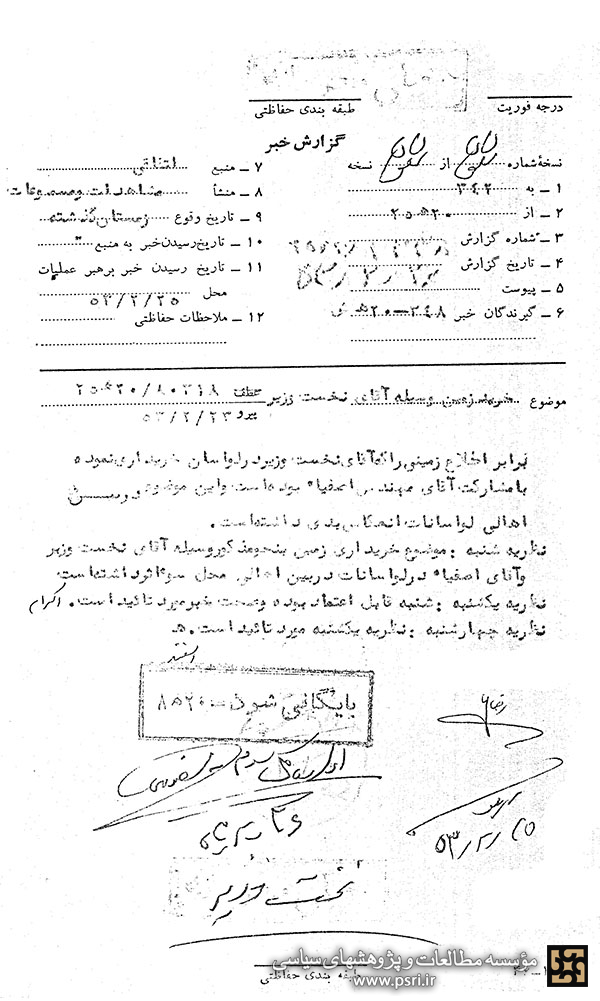 درجه فوریت
طبقه بندی حفاظتی
گزارش خبر
نسخهٔ شماره از نسخه
۱ ـ به ۳۴۲
۲ ـ از ۲۰ه۲۵
۳ ـ شماره گزارش
۴ ـ تاریخ گزارش
۵ ـ پیوست
۶ ـ گیرندگان خبر ۳۴۸ـ۲۰ه
۷ ـ منبع اتفاقی
۸ ـ منشأ مشاهدات ومسموعات
۹ ـ تاریخ وقوع زمستان گذشته
۱۰ ـ تاریخ رسیدن خبر به منبع ـ
۱۱ ـ تاریخ رسیدن خبر برهبر عملیات
محل ۵۳/۲/۲۵
۱۲ ـ ملاحظات حفاظتی
موضوع خرید زمین وسیله آقای نخست وزیر عطف ۸۰۳۱۸/۲۰ه۲۵
پیرو ۵۳/۲/۲۳
برابر اطلاع زمینی را که آقای نخست وزیر در لواسان خریداری نموده
با مشارکت آقای مهندس اصفیاء بوده است واین موضوع در بین
اهالی لواسانات انعکاس بدی داشته است.
نظریه شنبه : موضوع خریداری زمین بنحو مذکور وسیله آقای نخست وزیر
وآقای اصفیاء در لواسانات در بین اهالی محل سوء اثر داشته است
نظریه یکشنبه : شنبه قابل اعتماد بوده وصحت خبر مورد تائید است.
نظریه چهارشنبه : نظریه یکشنبه مورد تائید است. ه
بایگانی شود ـ ۲۰ه۸
نخست وزیر
طبقه بندی حفاظتی
مؤسسه مطالعات و پژوهشهای سیاسی
www.psri.ir